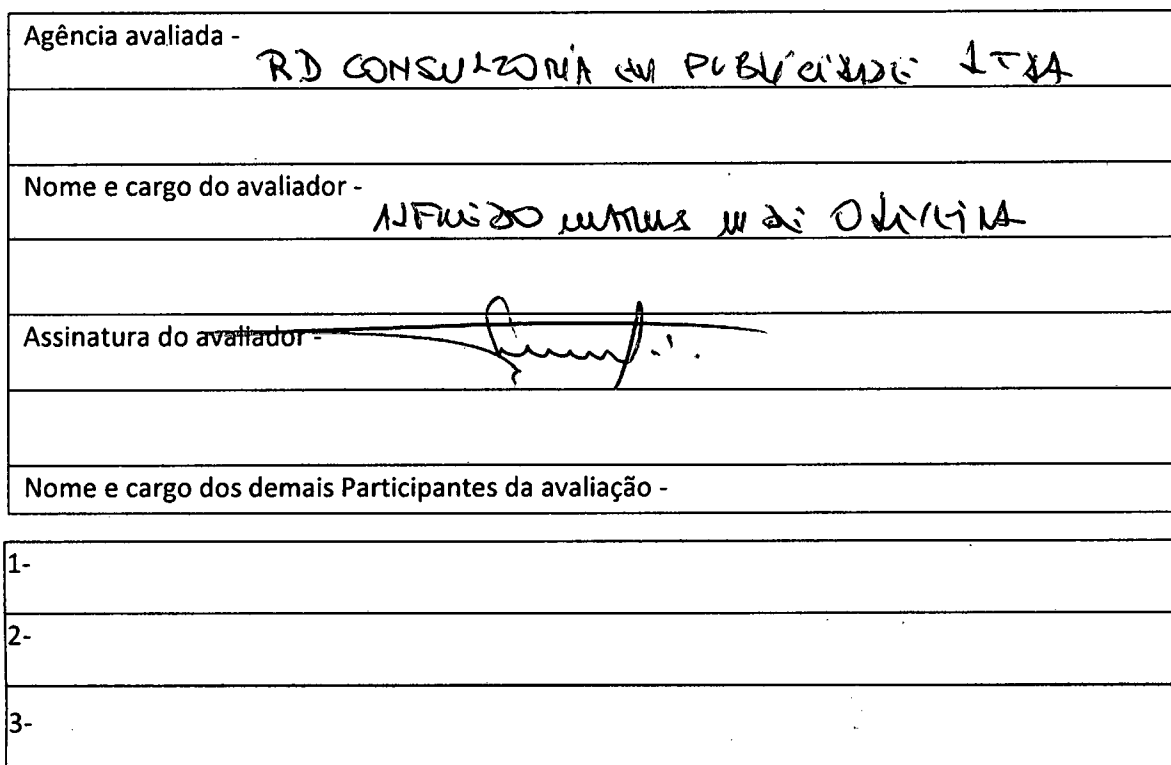 Agência avaliada -
RD CONSULTORIA EM PUBLICIDADE LTDA
Nome e cargo do avaliador -
ALFREDO M DE OLIVEIRA
Assinatura do avaliador -
Nome e cargo dos demais Participantes da avaliação -
1-
2-
3-